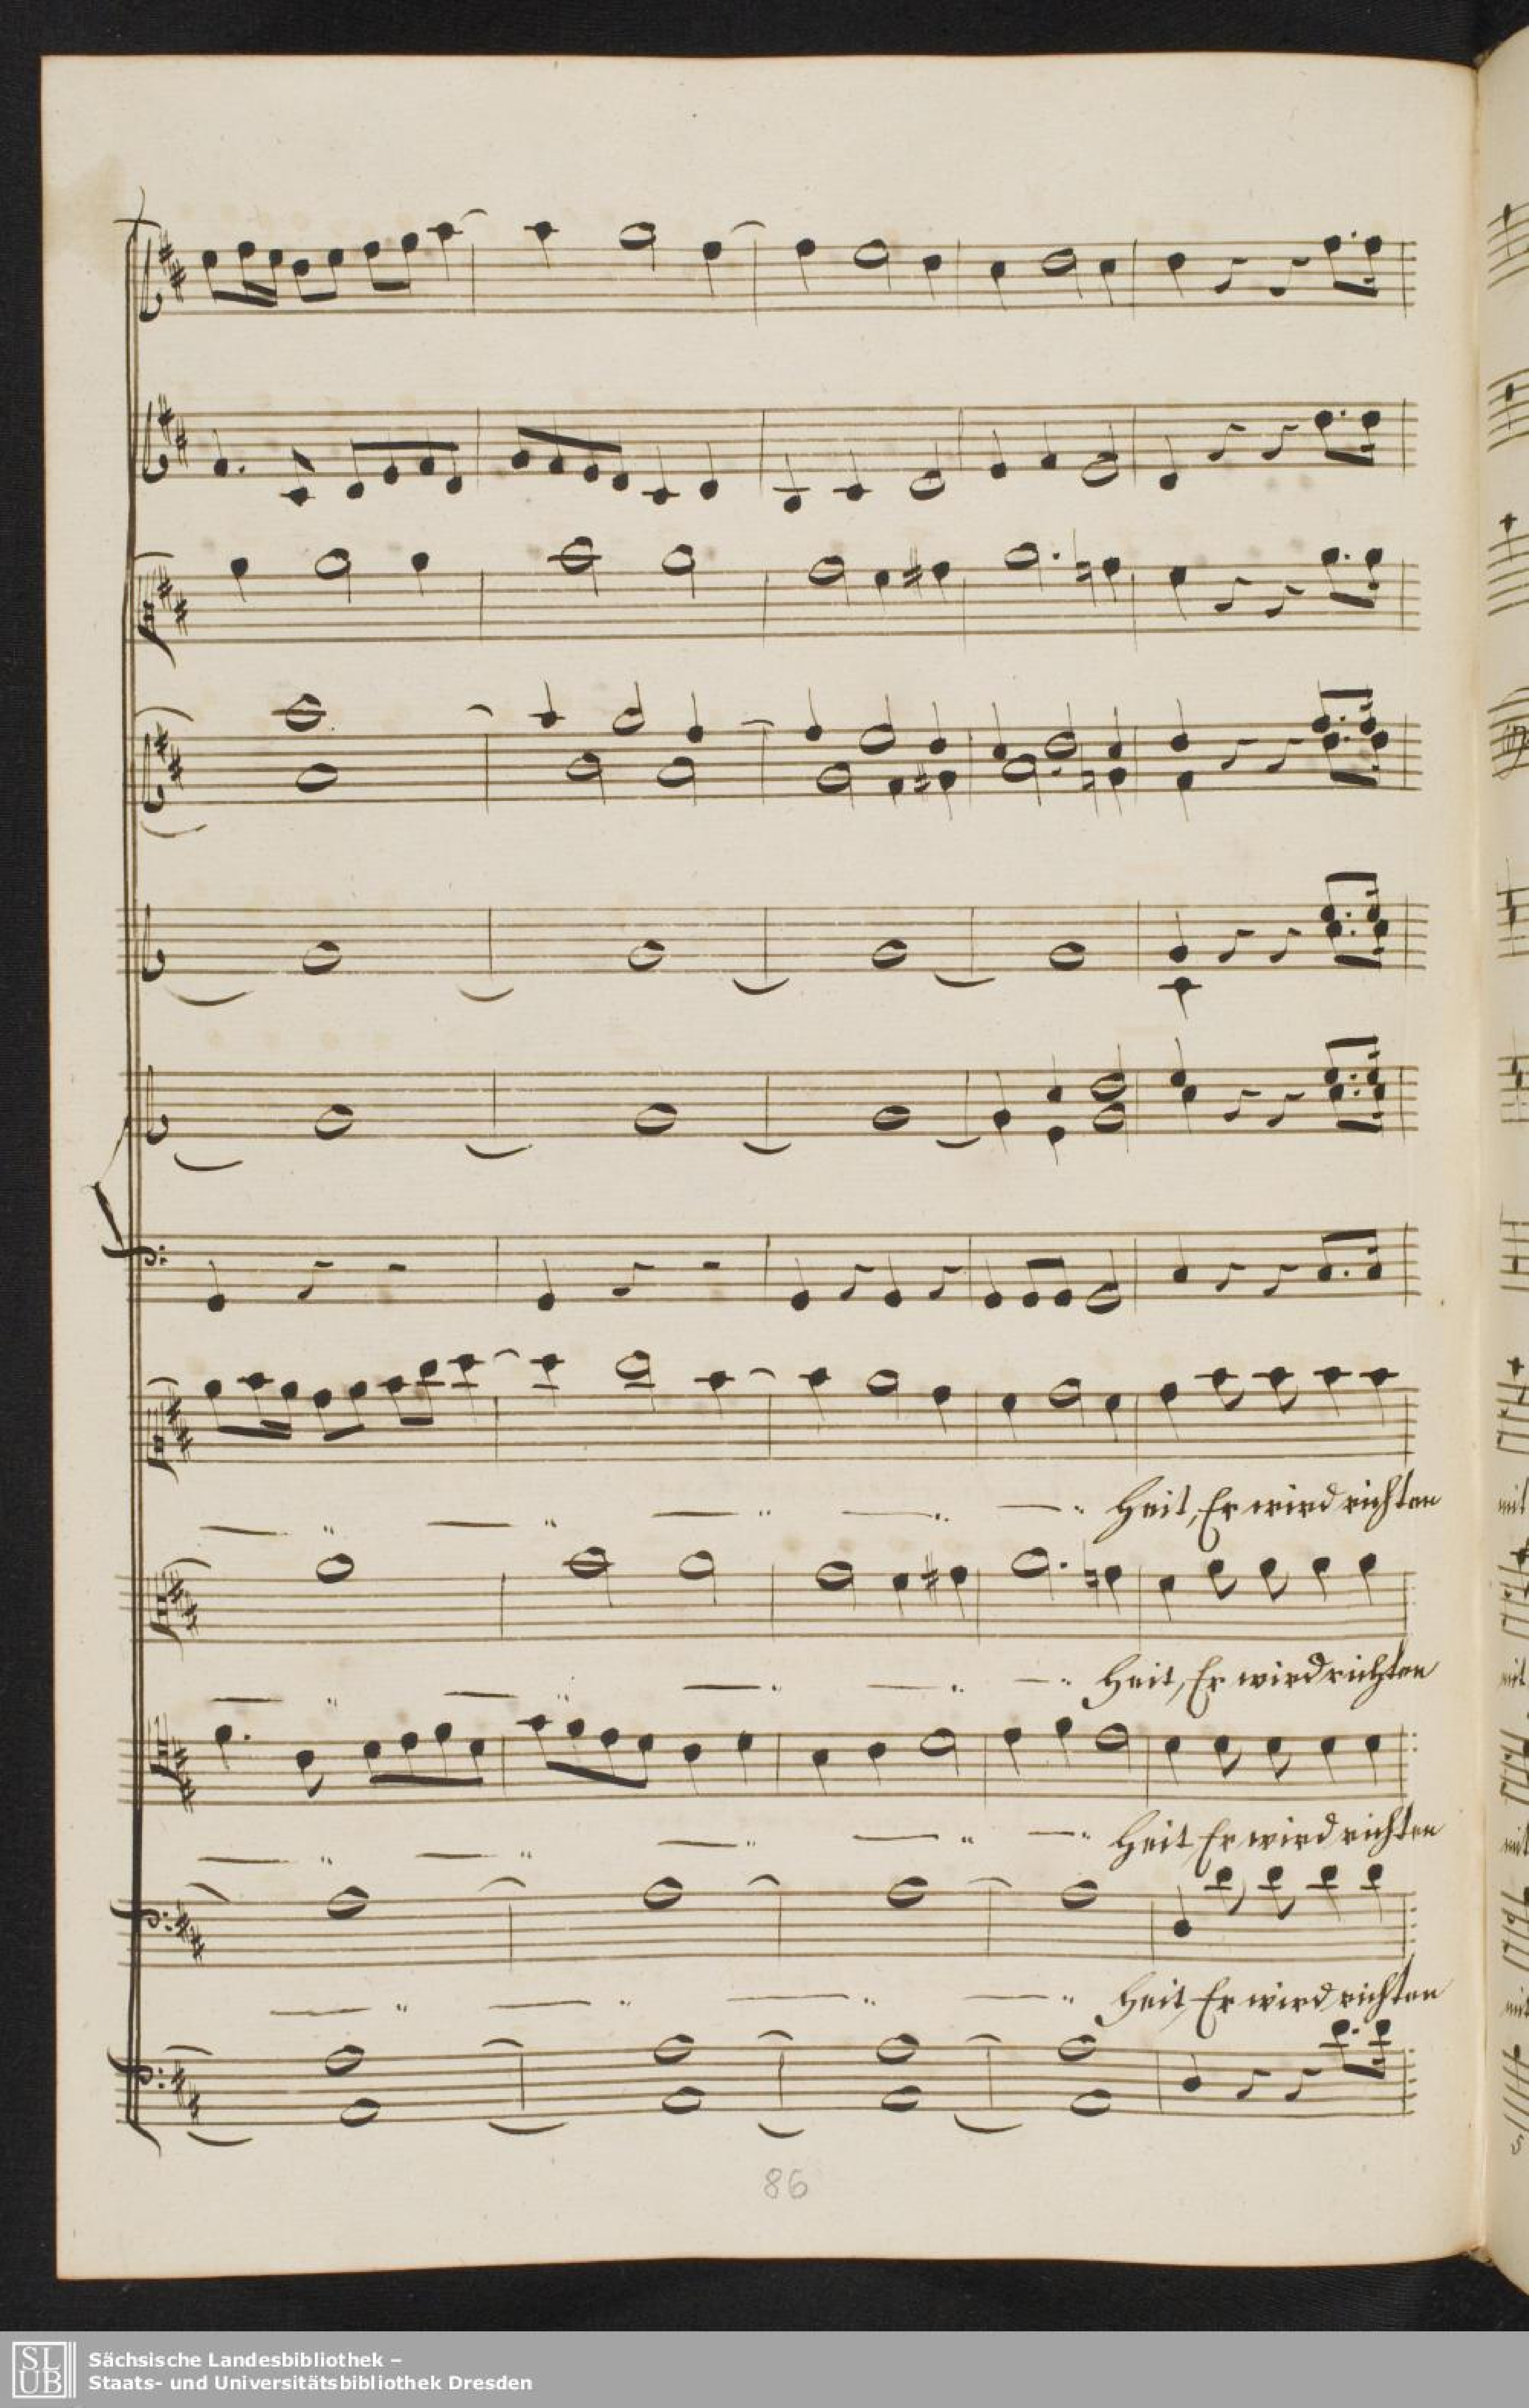 Heit, Er wird richten
Heit, Er wird richten
Heit, Er wird richten
Heit, Er wird richten
86
SLUB
Sächsische Landesbibliothek –
Staats- und Universitätsbibliothek Dresden